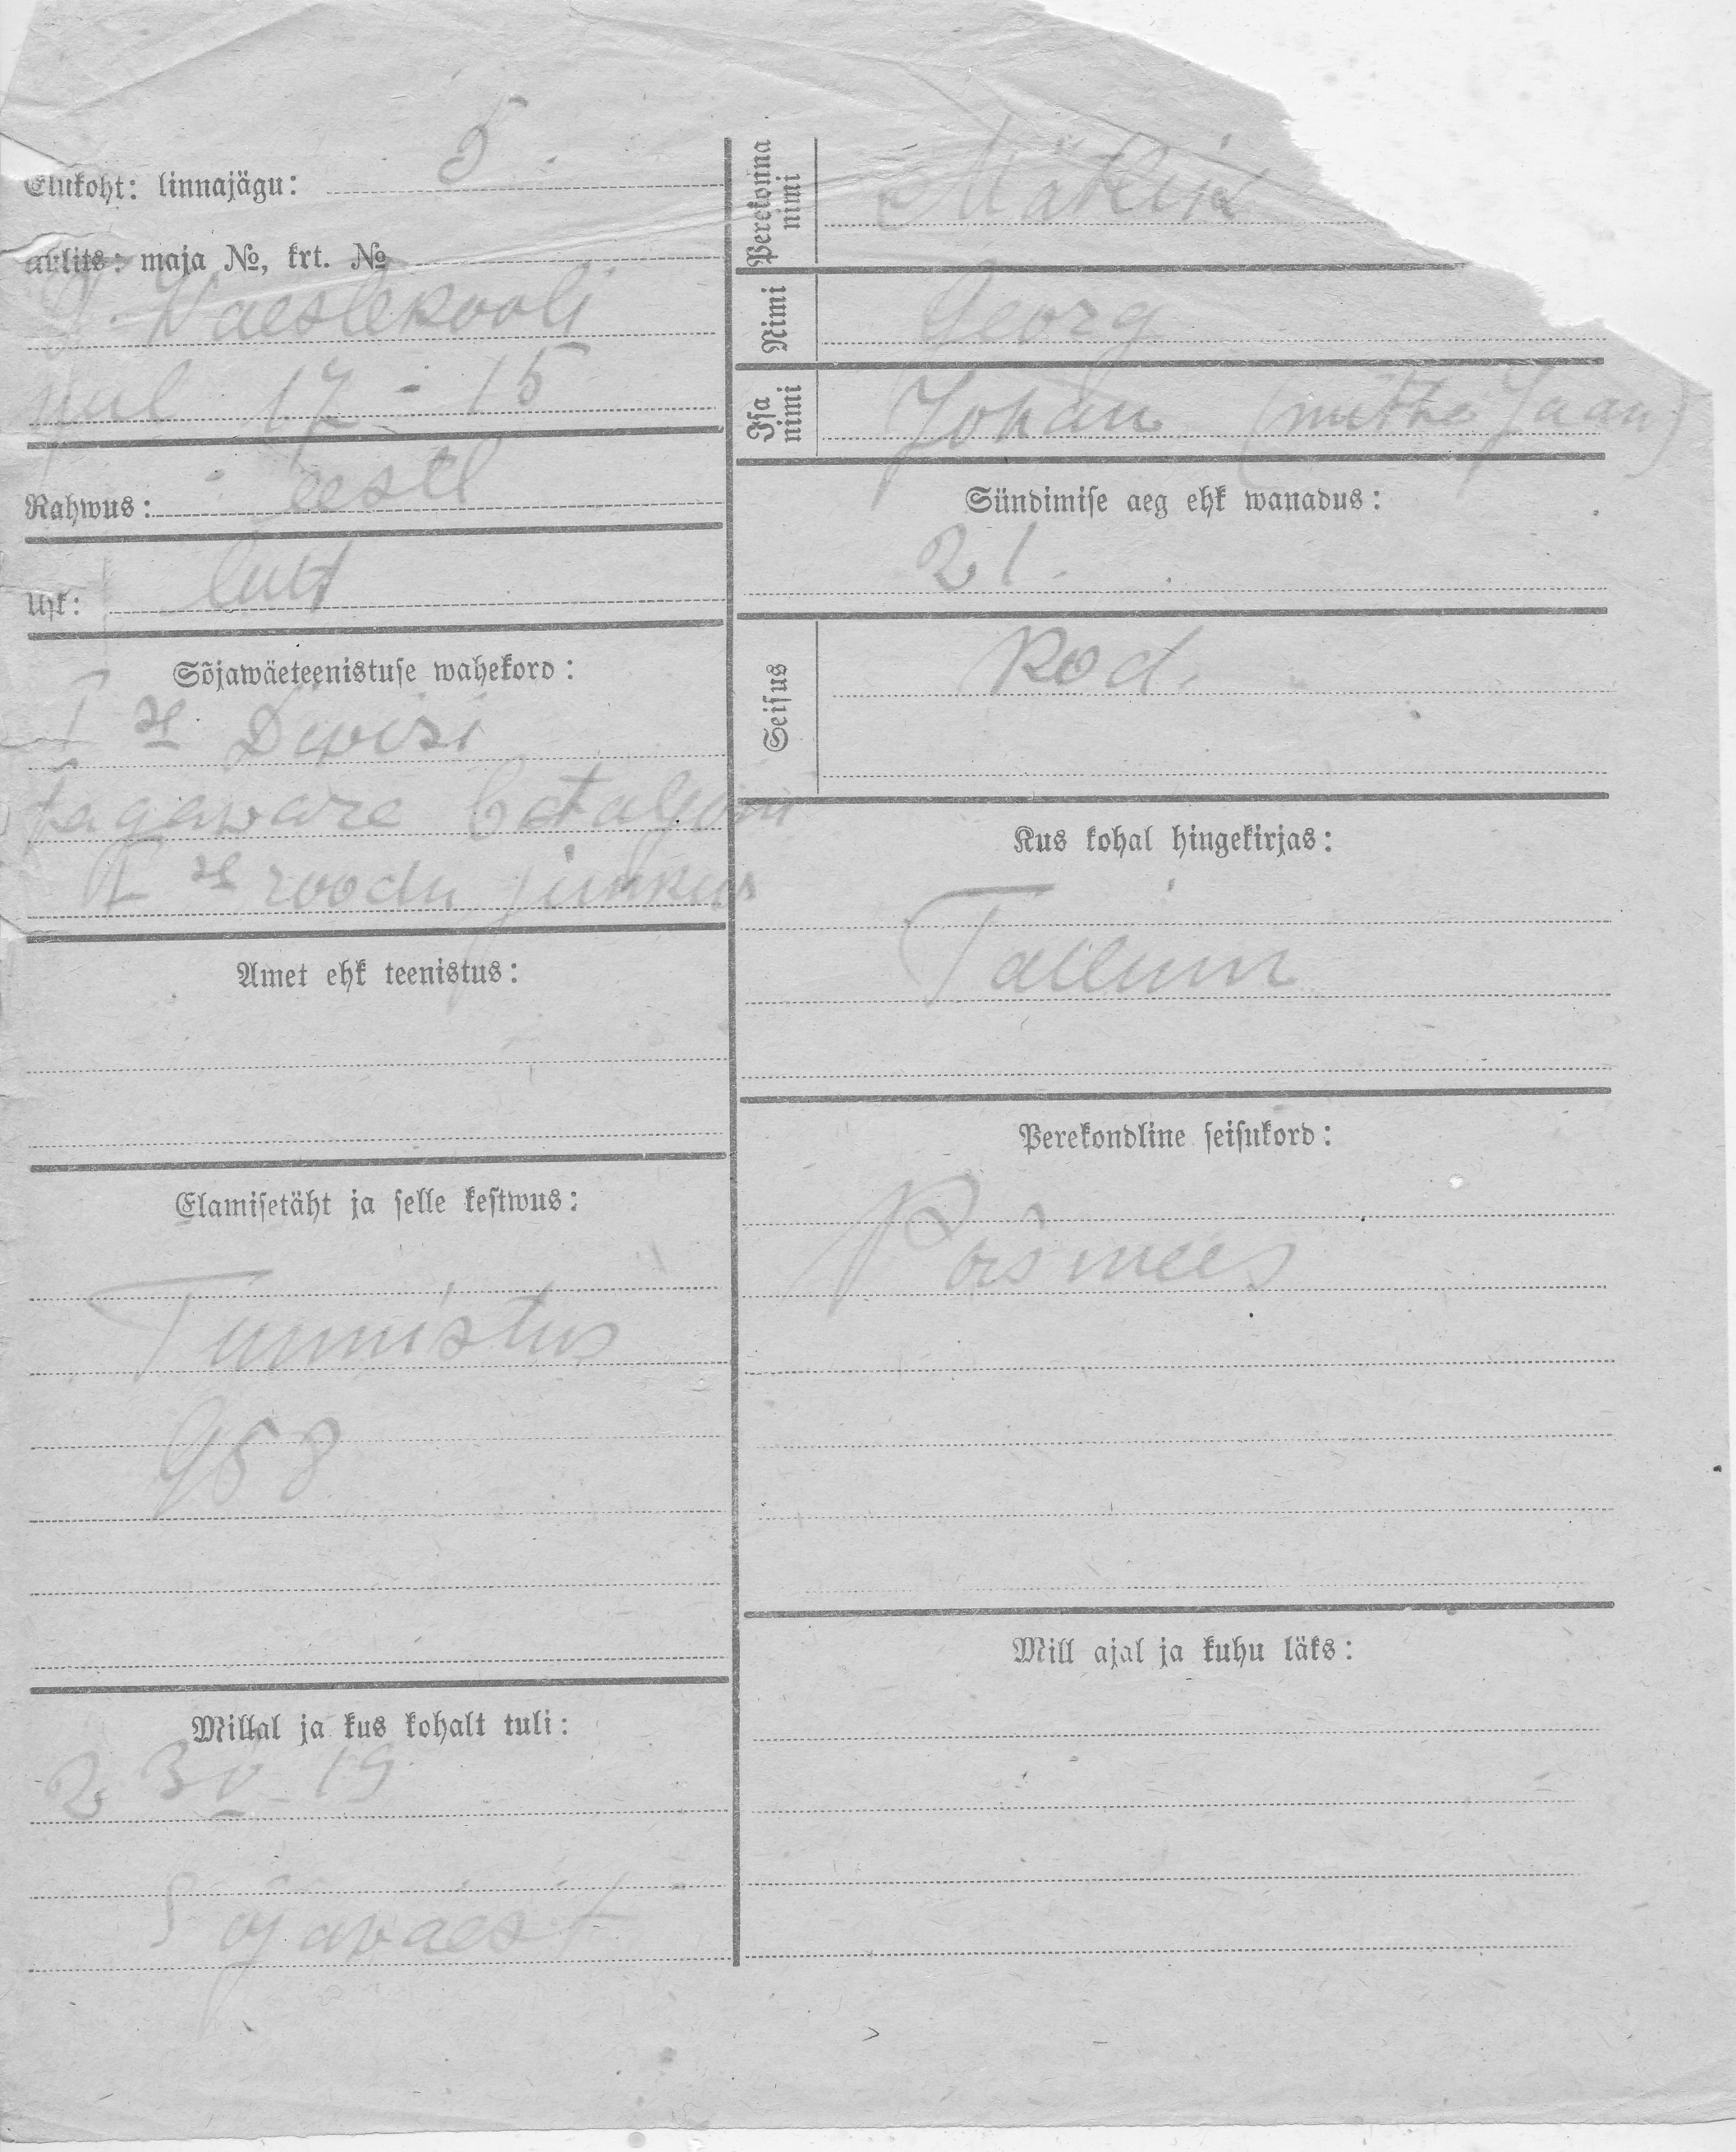 Elukoht: linnajägu: 5.
uulits: maja №, krt. №
Waestekooli
uul 17 - 15
Rahwus: eestl
Usk: lutt
Sõjawäeteenistuse wahekord:
I se Diwisi
tagaware bataljoni
roodu junkur
Amet ehk teenistus:
Elamisetäht ja selle kestwus:
Tunnistus
958
Millal ja kus kohalt tuli:
23 V 19
Sõjawäest
Perekonna nimi
Nimi Georg
Isa nimi Johan (mitte Jaan)
Sündimise aeg ehk wanadus:
21.
Seisus kod.
Kus kohal hingekirjas:
Tallinn
Perekondline seisukord:
Poismees
Mill ajal ja kuhu läks: